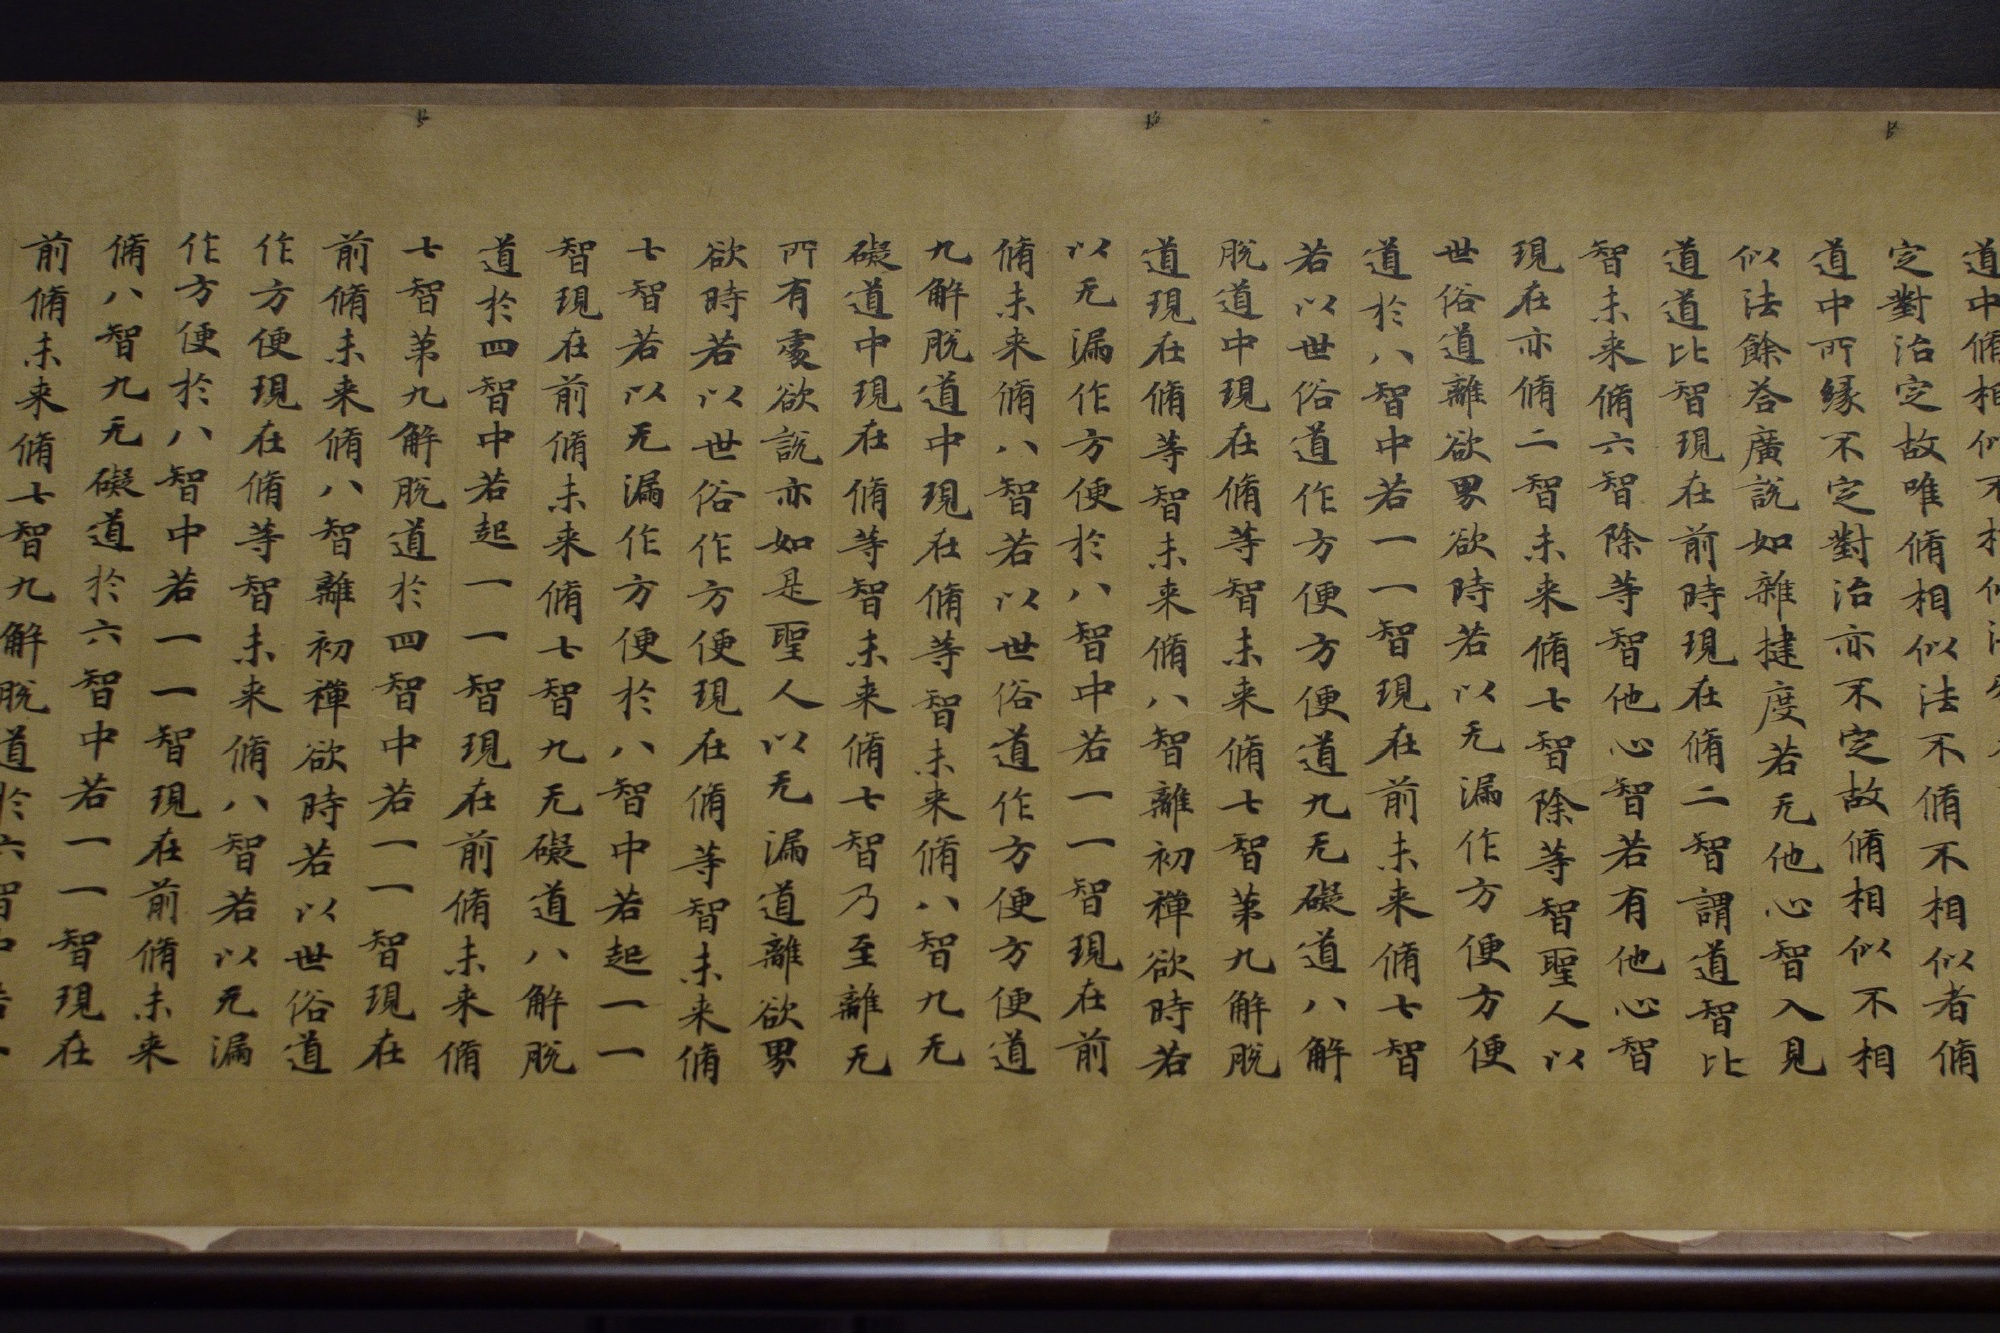 道中脩相似不相似法
定對治定故唯脩相似法不脩不相似者脩
道中所緣不定對治亦不定故脩相似不相
似法餘荅廣說如雜揵度若无他心智入見
道道比智現在前時現在脩二智謂道智比
智未来脩六智除等智他心智若有他心智
現在亦脩二智未来脩七智除等智聖人以
世俗道離欲界欲時若以无漏作方便方便
道於八智中若一一智現在前未来脩七智
若以世俗道作方便方便道九无礙道八解
脫道中現在脩等智未来脩七智第九解脫
道現在脩等智未来脩八智離初禪欲時若
以无漏作方便於八智中若一一智現在前
脩未来脩八智若以世俗道作方便方便道
九解脫道中現在脩等智未来脩八智九无
礙道中現在脩等智未来脩七智乃至離无
所有處欲說亦如是聖人以无漏道離欲界
欲時若以世俗作方便現在脩等智未来脩
七智若以无漏作方便於八智中若起一一
智現在前脩未来脩七智九无礙道八解脫
道於四智中若起一一智現在前脩未来脩
七智第九解脫道於四智中若一一智現在
前脩未来脩八智離初禪欲時若以世俗道
作方便現在脩等智未来脩八智若以无漏
作方便於八智中若一一智現在前脩未来
脩八智九无礙道於六智中若一一智現在
前脩未来脩七智九解脫道於六智中若一